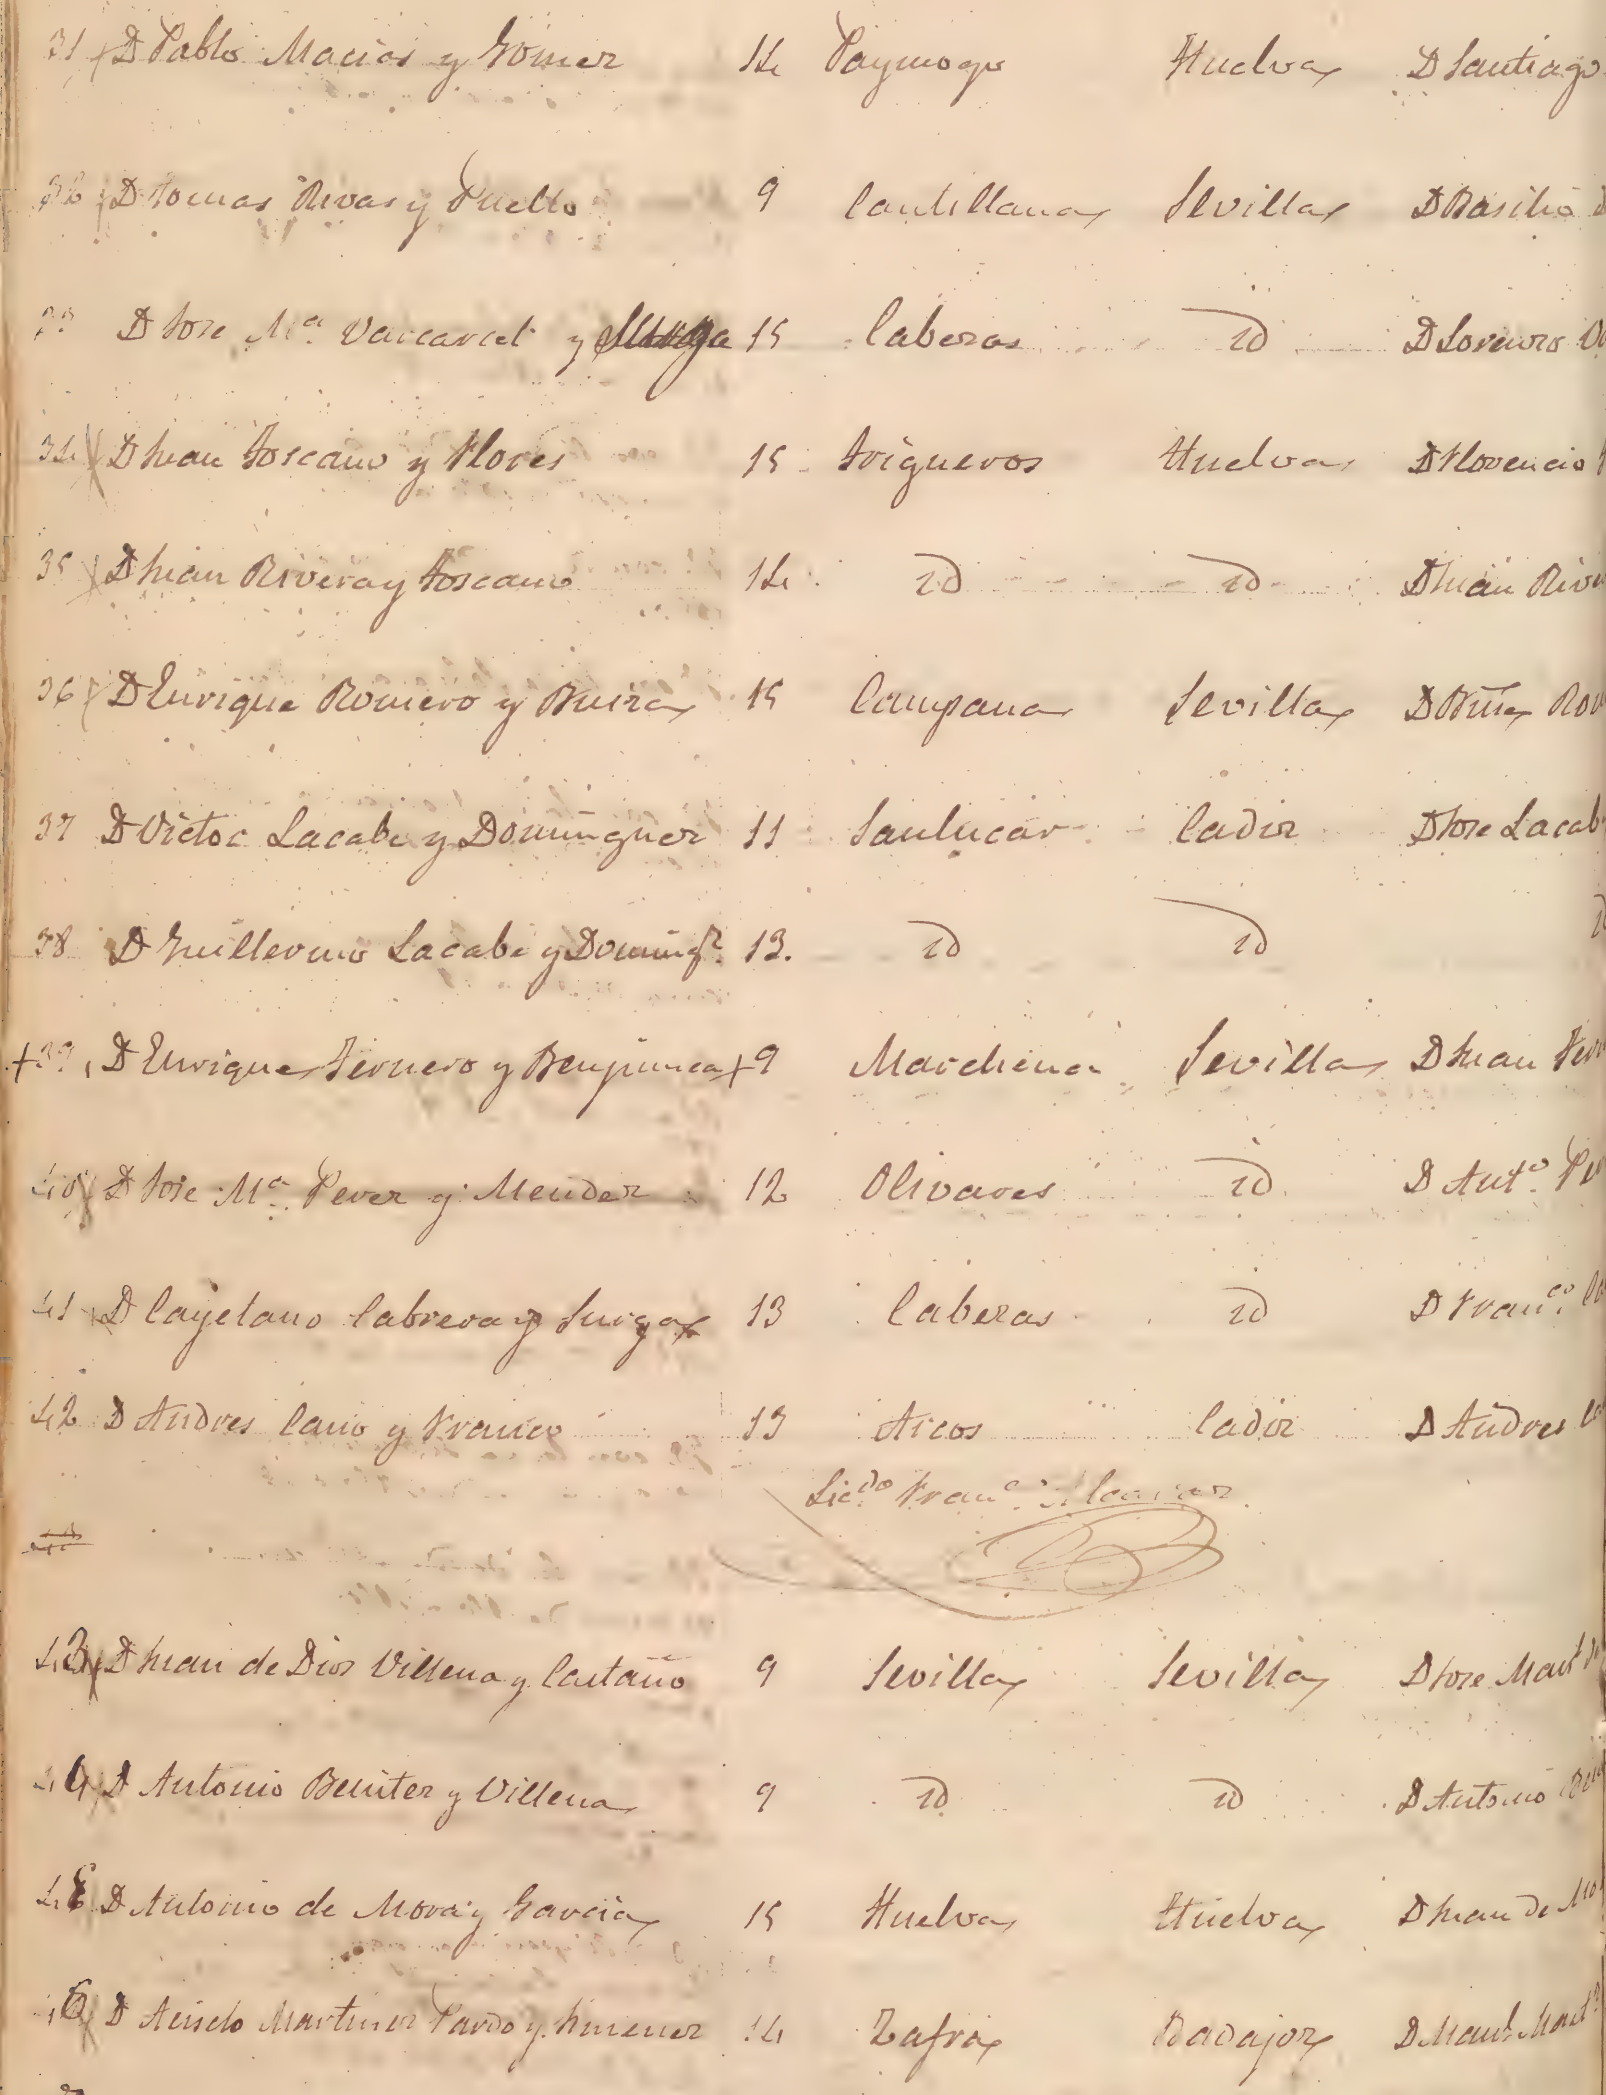 31 D Pablo Macias y Gomez 14 Paymogo Huelva D Santiago
32 D Tomas Rivas y Puello 9 Cantillana Sevilla D Basilio
33 D Jose Mª Varcarcel y 15 Cabezas id D Lorenzo
34 D Juan Toscano y Flores 15 Trigueros Huelva D Florencio
35 D Juan Rivera y Toscano 14 id id D Juan Rive
36 D Enrique Romero y 15 Campana Sevilla D Rom
37 D Victor Lacabe y Dominguez 11 Sanlucar Cadiz D Jose Lacab
38 D Guillermo Lacabe y Doming.z 13. id id id
+39 D Enrique Ternero y Benjumea + 9 Marchena Sevilla D Juan Tern
40 D Jose Mª Perez y Mendez 12 Olivares id D Ant.º Per
41 D Cayetano Cabrera y Surga 13 Cabezas id D Fran.co Ca
42 D Andres Cano y Franco 13 Arcos Cadiz D Andres Ca
Lic.do Fran.co Alcazar
43 D Juan de Dios Villena y Castaño 9 Sevilla Sevilla D Jose Man.l
44 D Antonio Benitez y Villena 9 id id D Antonio Ben
45 D Antonio de Mora y Garcia 15 Huelva Huelva D Juan de Mo
46 D Acisclo Martinez Pardo y Jimenez 14 Zafra Badajoz D Man.l Mart.z